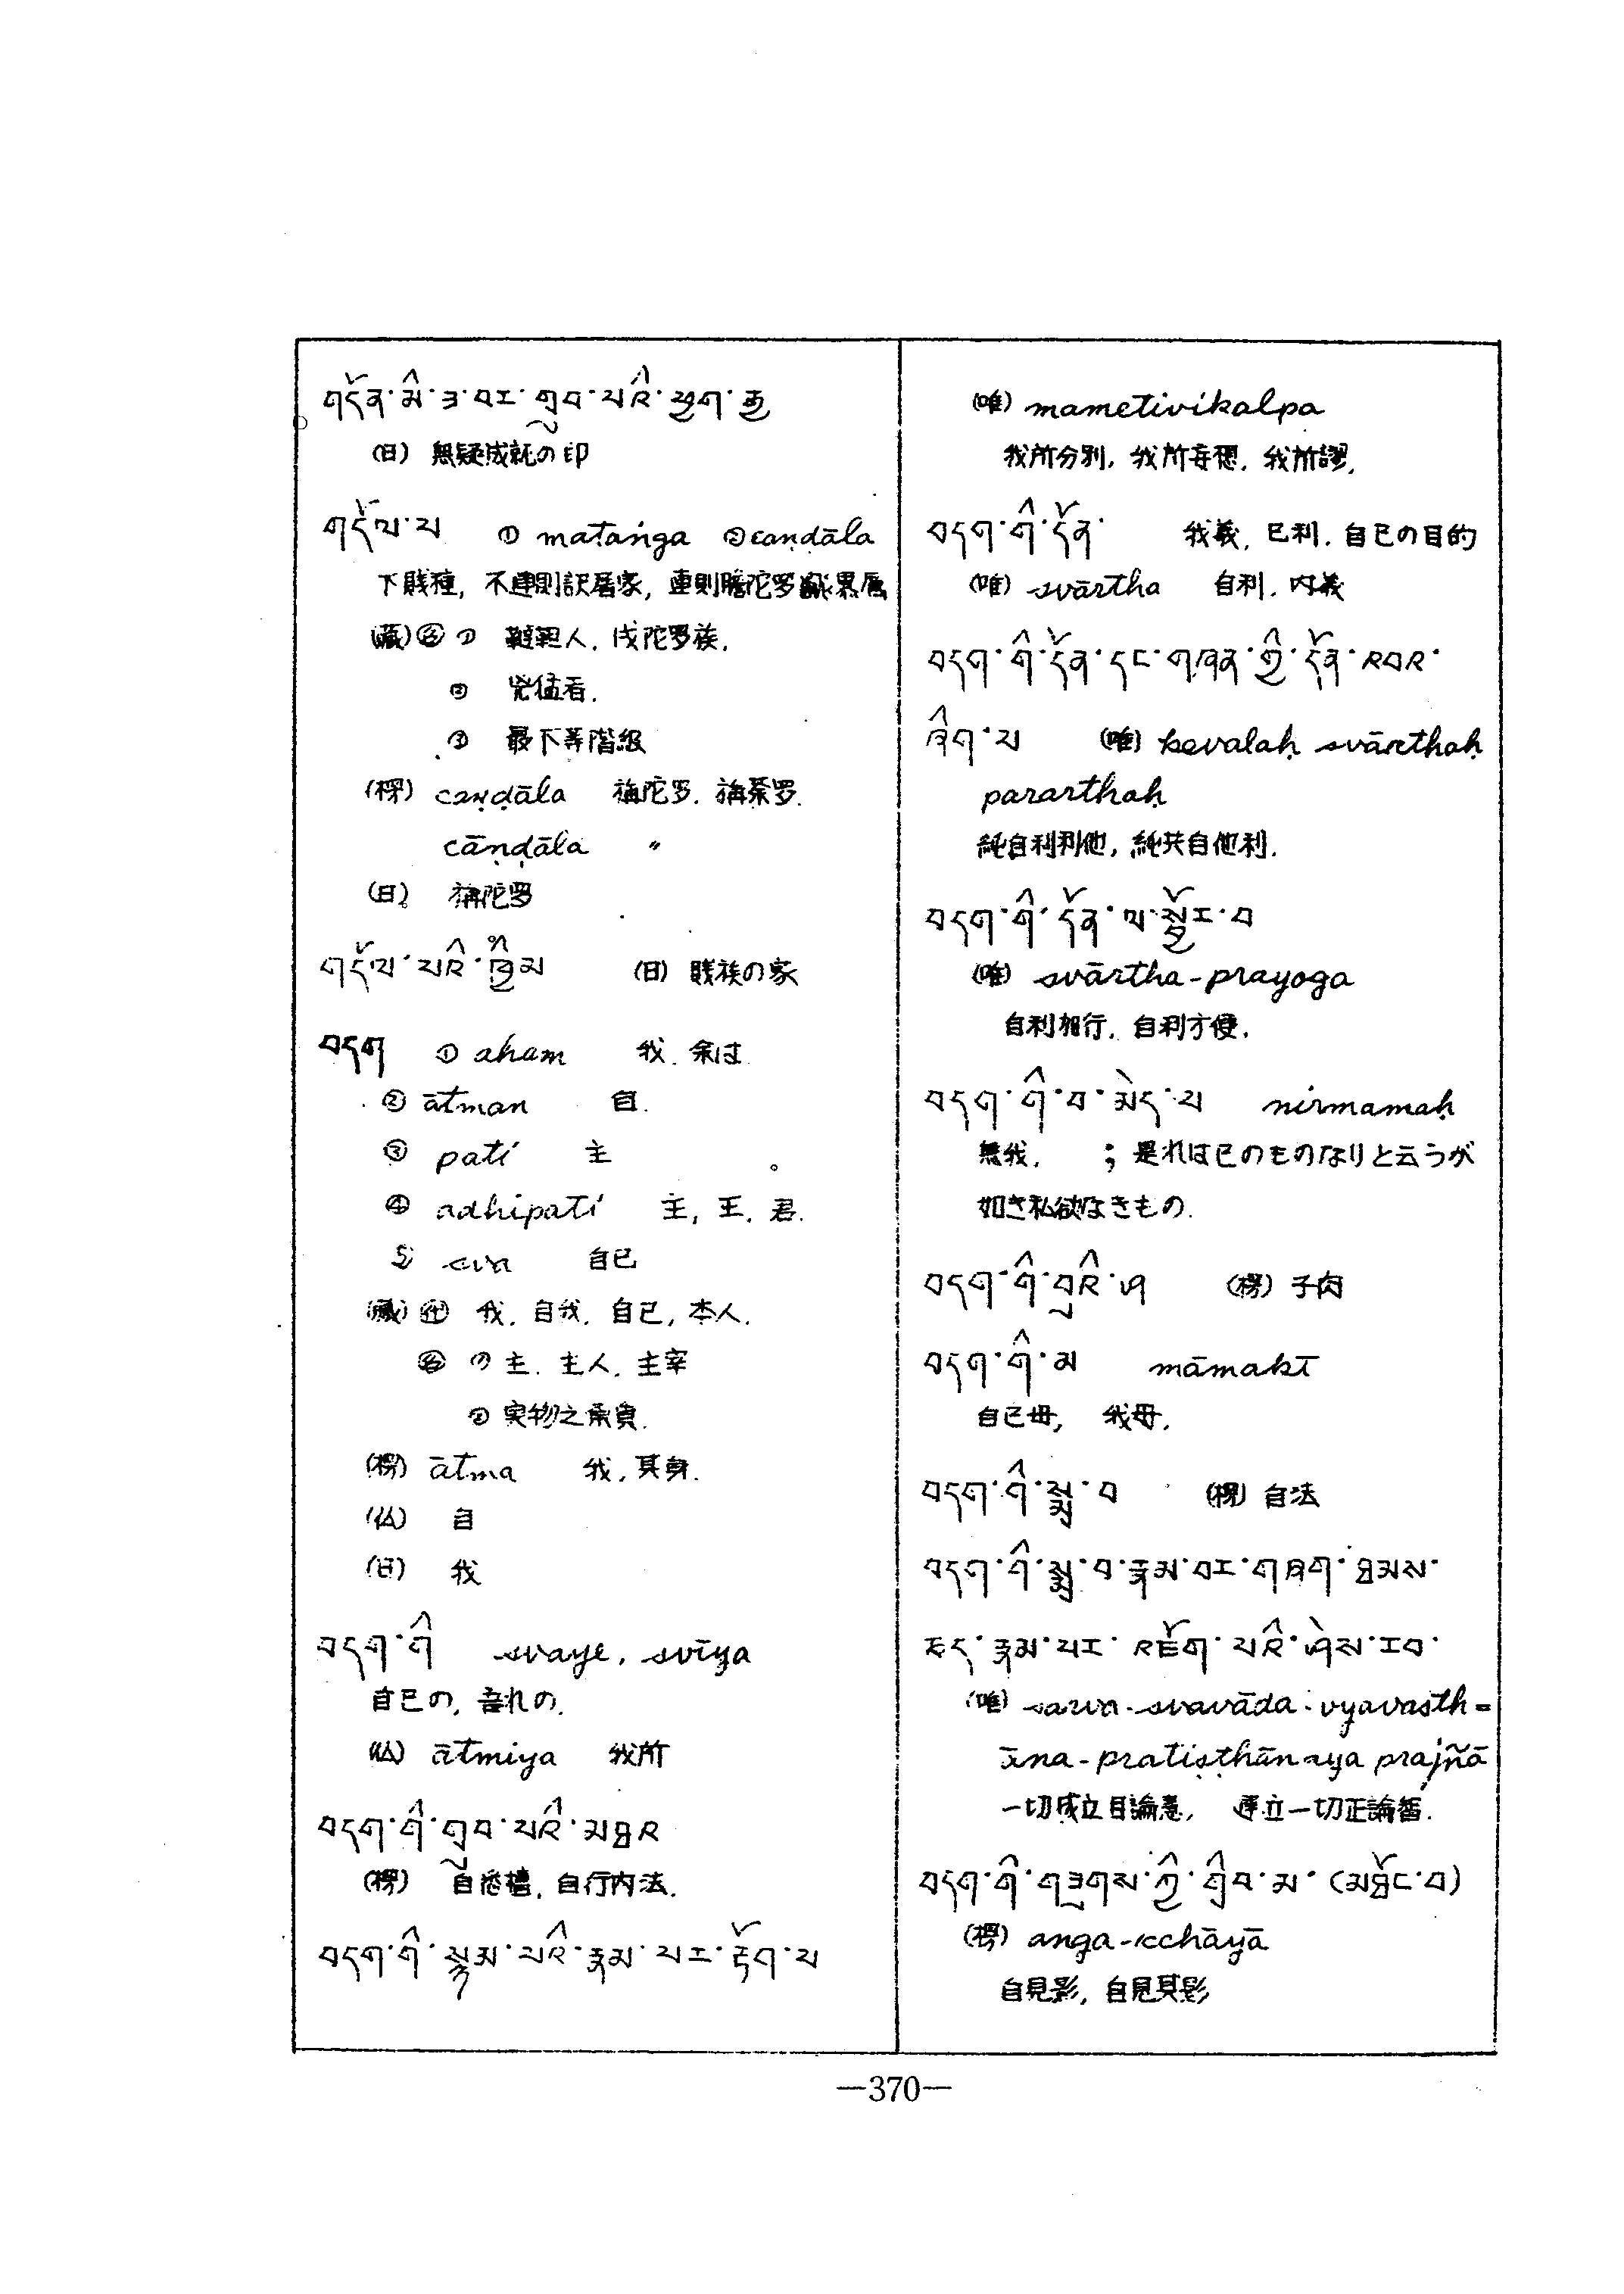 གདོན་མི་ཟ་བར་གྲུབ་པའི་ཕྱག་རྒྱ
(日) 無疑成就の印
གདོལ་པ ① mataṅga ②caṇḍāla
下賎種, 不連則訳屠家, 連則旃陀罗
(藏)㊔① 韃靼人, 伐陀罗族.
② 兇猛者.
③ 最下等階級
(楞) caṇḍāla 旃陀罗. 旃荼罗.
cāṇḍāla 〃
(日) 旃陀罗
གདོལ་པའི་ཁྱིམ (日) 賎族の家
བདག ① aham 我. 余は
② ātman 自.
③ pati 主
④ adhipati 主, 王. 君.
⑤ sva 自已
(藏) ㊹ 我. 自我. 自己, 本人.
㊔ ① 主. 主人. 主宰
② 実物之
(楞) ātma 我, 其身.
(仏) 自
(日) 我
བདག་གི svaye, svīya
自已の, 吾れの.
(仏) ātmiya 我所
བདག་གི་གྲུབ་པའི་མཐའ
(楞) 自悉檀, 自行内法.
བདག་གི་སྙམ་པའི་རྣམ་པར་རྟོག་པ
(唯) mametivikalpa
我所分別, 我所妄想. 我所謬.
བདག་གི་དོན་ 我義, 已利. 自已の目的
(唯) svārtha 自利. 内義
བདག་གི་དོན་དང་གཞན་གྱི་དོན་འབའ་
ཞིག་པ (唯) kevalaḥ svārthaḥ
pararthaḥ
純自利利他, 純共自他利.
བདག་གི་དོན་ལ་སྦྱོར་བ
(唯) svārtha-prayoga
自利加行. 自利方便.
བདག་གི་བ་མེད་པ nirmamaḥ
無我. ; 是れは已のものなりと云うが
如き私欲なきもの.
བདག་གི་བུའི་ཤ (楞) 子肉
བདག་གི་མ māmakī
自己母, 我母.
བདག་གི་སྨྲ་བ (楞) 自法
བདག་གི་སྨྲ་བ་རྣམ་བར་གཞག་ཐམས་
ཅད་རྣམ་པར་འཇོག་པའི་ཤེས་རབ་
(唯) sarva-svavāda-vyavasth=
āna-pratiṣṭhānaya prajñā
一切成立自論慧, 建立一切正論智.
བདག་གི་གཟུགས་ཀྱི་གྲིབ་མ་(མཐོང་བ)
(楞) anga-kchāyā
自見影, 自見其影
—370—